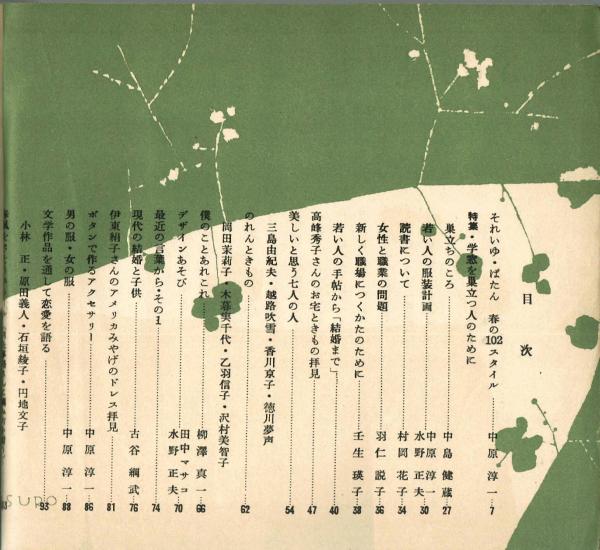 目次
それいゆ・ぱたん 春の102スタイル 中原淳一 7
特集・学窓を巣立つ人のために
巣立ちのころ 中島健蔵 27
若い人の服装計画 中原淳一 水野正夫 30
読書について 村岡花子 34
女性と職業の問題 羽仁説子 36
新しく職場につくかたのために 壬生瑛子 38
若い人の手帖から「結婚まで」 40
高峰秀子さんのお宅ときもの拝見 47
美しいと思う七人の人 54
三島由紀夫・越路吹雪・香川京子・徳川夢声
岡田茉莉子・木暮実千代・乙羽信子・沢村美智子
のれんときもの 62
僕のことあれこれ 柳澤真一 66
デザインあそび 田中マサコ 水野正夫 70
最近の言葉から・その1 74
現代の結婚と子供 古谷綱武 76
伊東絹子さんのアメリカみやげのドレス拝見 81
ボタンで作るアクセサリー 中原淳一 86
男の服・女の服 中原淳一 88
文学作品を通して恋愛を語る 93
小林正・原田義人・石垣綾子・円地文子
SURO